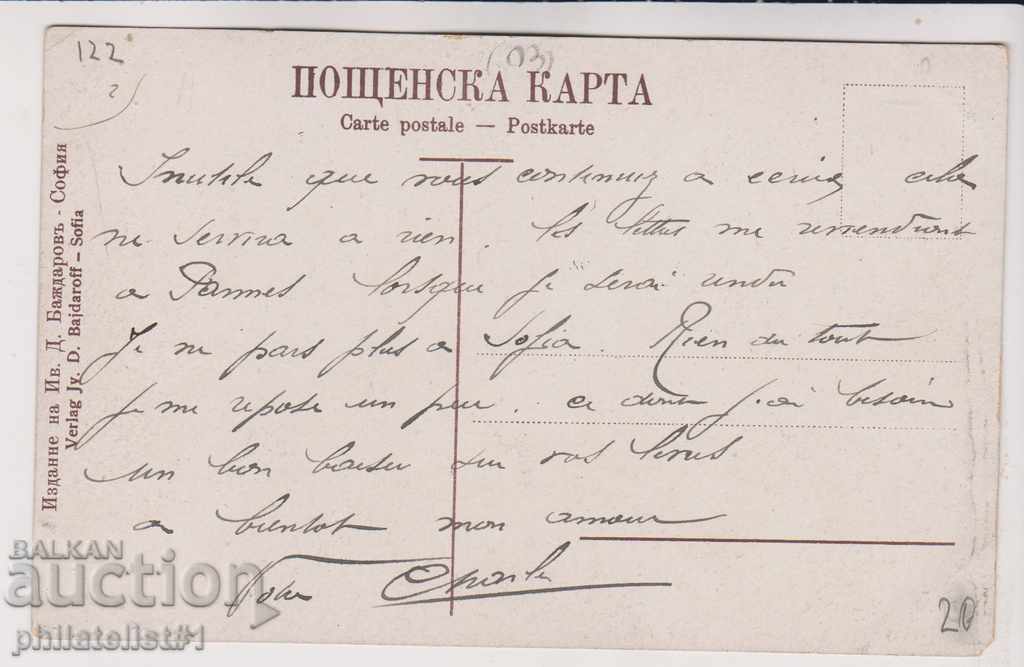 122
2
(03)
ПОЩЕНСКА КАРТА
Carte postale — Postkarte
Издание на Ив. Д. Баждаровъ - София
Verlag Jv. D. Bajdaroff – Sofia
Inutile que vous continuiez a ecrire cela
ne servira a rien. les lettres me reviendront
a Vannes lorsque je serai rendu
Je ne pars plus a Sofia. Rien du tout
Je me repose un peu. ce dont j'ai besoin
un bon baiser sur vos levres
a bientot mon amour
Votre Charles
20
BALKAN
auction
philatelist#1